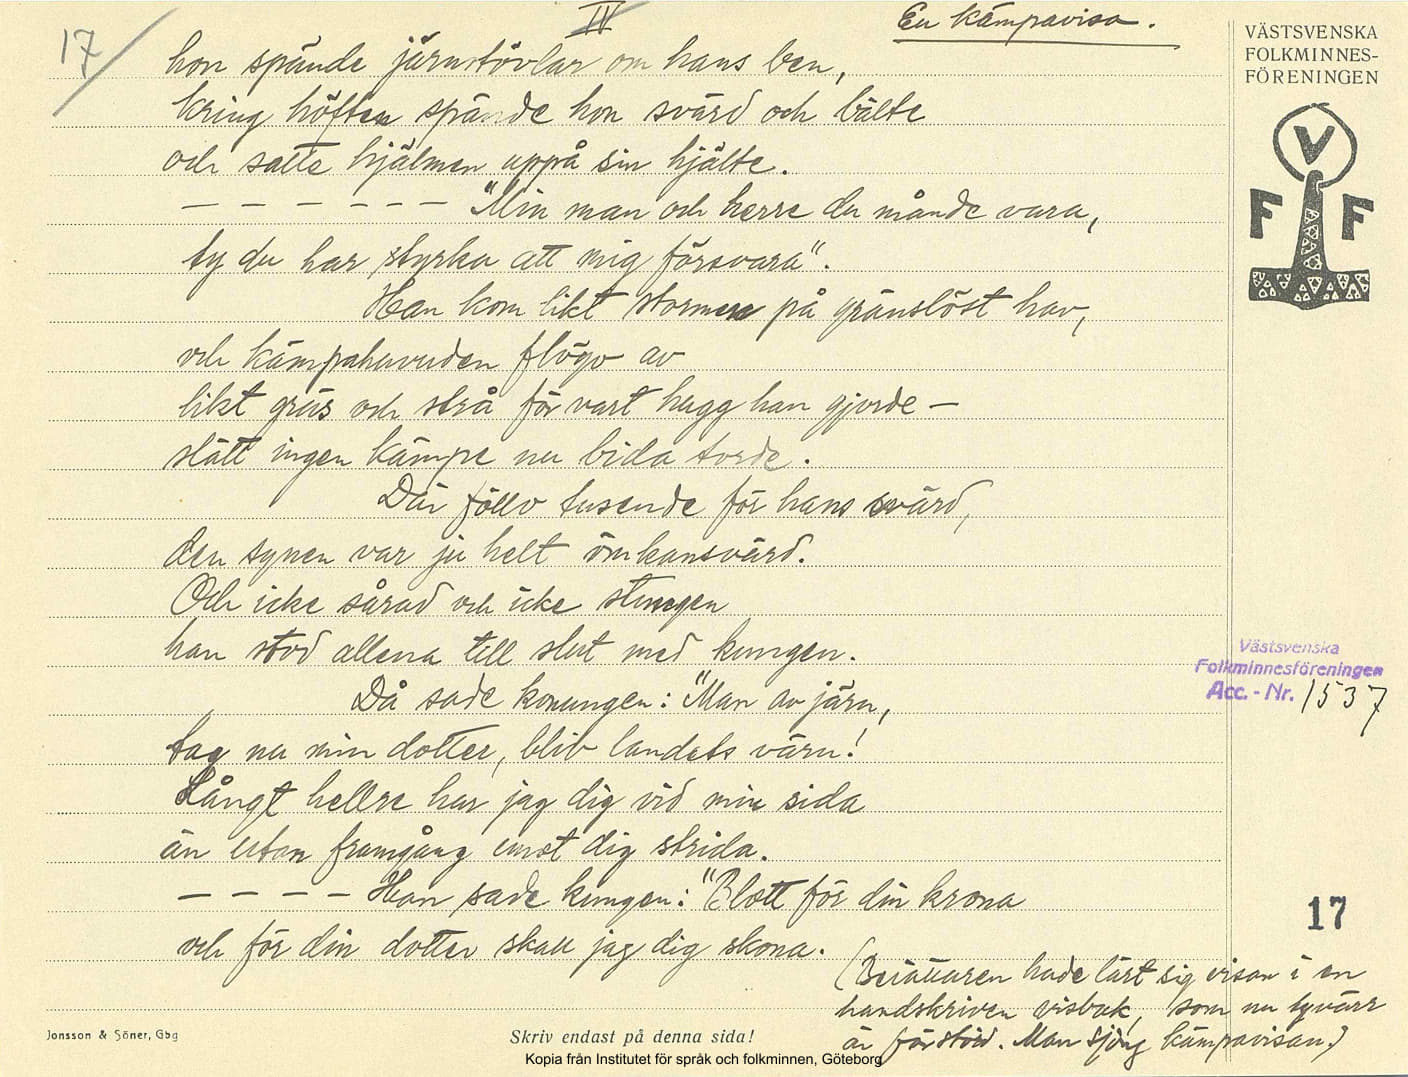 17
IV
En kämpavisa.
hon spände järnstövlar om hans ben,
kring höften spände hon svärd och bälte
och satte hjälmen uppå sin hjälte.
— — — — — — "Min man och herre du månde vara,
ty du har styrka att mig försvara".
Han kom likt stormen på gränslöst hav,
och kämpahuvuden flögo av
likt gräs och strå för vart hugg han gjorde —
slätt ingen kämpe nu bida torde.
Där föllo tusende för hans svärd,
den synen var ju helt ömkansvärd.
Och icke sårad och icke stungen
han stod allena till slut med kungen.
Då sade konungen: "Man av järn,
tag nu min dotter, bliv landets värn!
Långt hellre har jag dig vid min sida
än utan framgång emot dig strida.
— — — — Han sade kungen: "Blott för din krona
och för din dotter skall jag dig skona.
(Berättaren hade lärt sig visan i en
handskriven visbok, som nu tyvärr
är förstörd. Man sjöng kämpavisan.)
VÄSTSVENSKA
FOLKMINNES-
FÖRENINGEN
V
F F
Västsvenska
Folkminnesföreningen
Acc. - Nr. 1537
17
Jonsson & Söner, Gbg
Skriv endast på denna sida!
Kopia från Institutet för språk och folkminnen, Göteborg